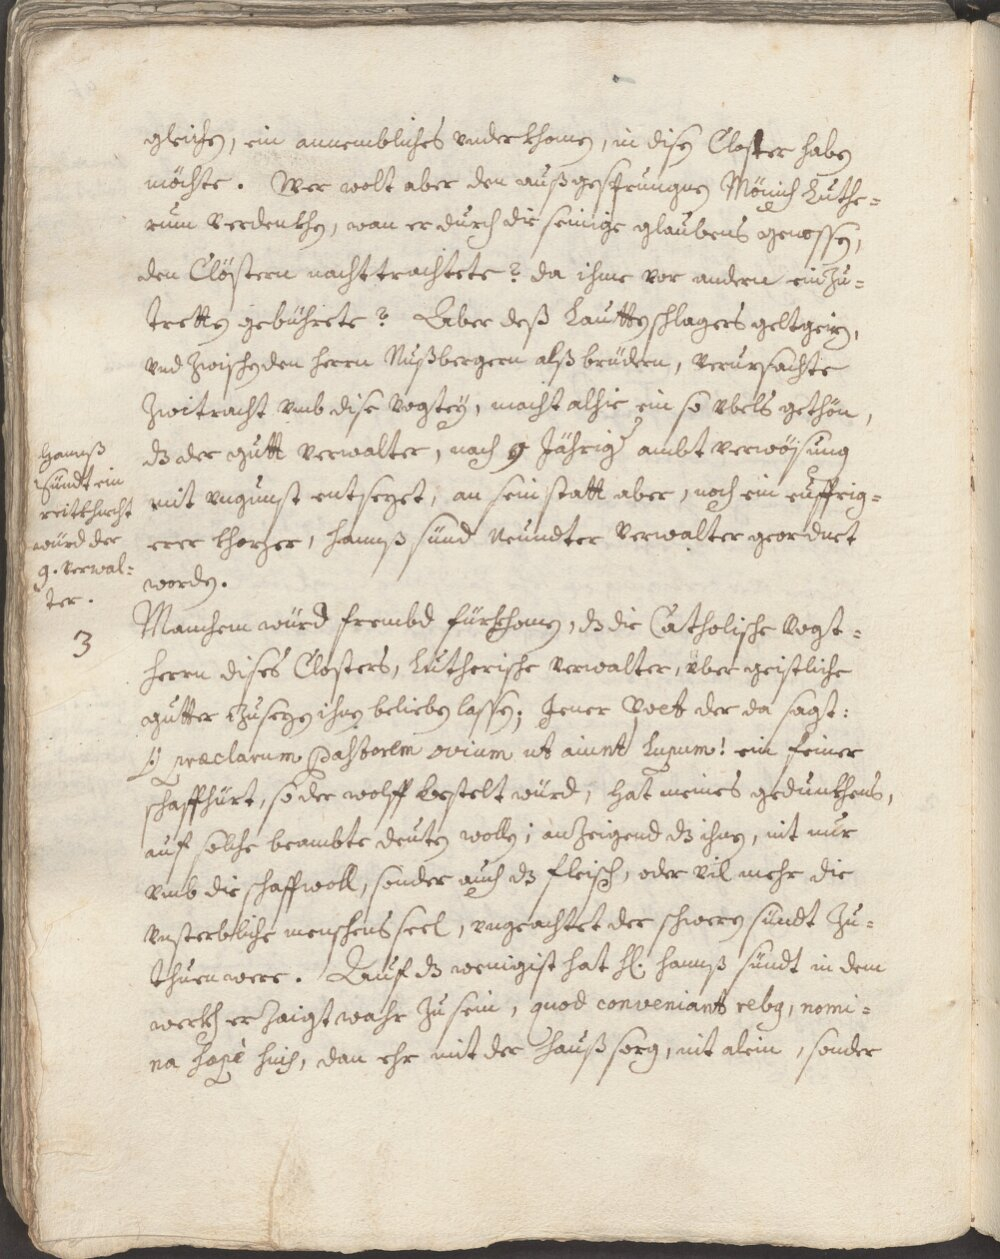 gleichen, ein annembliches underkhomen, in disen Closter haben
möchte. Wer wolt aber den außgesprungnen Mönich Luthe=
rum verdenkhen, wan er durch die seinige glaubens genossen,
den Clöstern nacht trachtete? da ihme vor andern einzu=
tretten gebührete? Aber deß Lauttenschlagers geltgeirn,
vnd zwischen den herrn Nußbergern alß brüdern, verursachte
Zwitracht vmb dise vogtey, macht alhie ein so vbels gethön,
dz der gutt verwalter, nach 9 Jährigr ambt verwösung
mit vngunst entsezet, an sein statt aber, noch ein euffrig=
erer khezer, hannß sünd neundter verwalter geordnet
worden.
Hannß
Sündt ein
reitkhnecht
würd der
9. verwal=
ter.
3
Manchem würd frembd fürkhomen, dz die Catholische vogt=
herrn dises Closters, Lutherische verwalter, über geistliche
gutter zusezen ihnen belieben lassen; Jener Poet der da sagt:
O præclarum Pastorem ovium ut aiunt Lupum! ein feiner
schaffhürt, so der wolff bestelt würd, hat meines gedunkhens,
auf solche beambte deuten wollen; anzeigend dz ihnen, nit nur
vmb die schaffwoll, sonder auch dz fleisch, oder vil mehr die
vnsterbliche menschens seel, vngeachtet der schweren sündt zu=
thuen were. Auf dz wenigist hat H. hannß sündt in dem
werkh erzaigt wahr zu sein, quod conveniant rebg, nomi=
na sæpè suis, dan ehr mit der haußsorg, nit alein, sonder